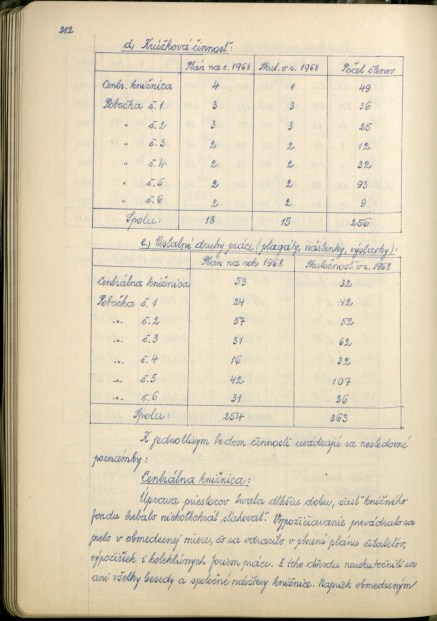 212
d, Krúžková činnosť:
Plán na r. 1968 Skut. v r. 1968 Počet členov
Centr. knižnica 4 1 49
Pobočka č. 1 3 3 36
" č. 2 3 3 25
" č. 3 2 2 12
" č. 4 2 2 32
" č. 5 2 2 93
" č. 6 2 2 9
Spolu: 18 15 256
e, Ostatné druhy práce (plagáty, nástenky, výstavky):
Plán na rok 1968 Skutočnosť v r. 1968
Centrálna knižnica 53 32
Pobočka č. 1 24 42
" č. 2 57 52
" č. 3 31 62
" č. 4 16 32
" č. 5 42 107
" č. 6 31 36
Spolu: 254 363
K jednotlivým bodom činnosti uvádzajú sa nasledovné
poznámky:
Centrálna knižnica:
Úprava priestorov trvala dlhšiu dobu, časť knižného
fondu trebalo niekoľkokrát sťahovať. Vypožičiavanie prevádzalo sa
preto v obmedzenej miere, čo sa odrazilo v plnení plánu čitateľov,
výpožičiek i kolektívnych foriem práce. Z toho dôvodu neuskutočnili sa
ani všetky besedy a spoločné návštevy knižnice. Napriek obmedzeným